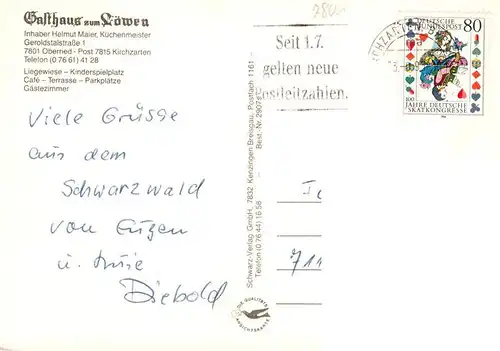 Gasthaus zum Löwen
Inhaber Helmut Maier, Küchenmeister
Geroldstalstraße 1
7801 Oberried - Post 7815 Kirchzarten
Telefon (0 76 61) 41 28
Liegewiese – Kinderspielplatz
Café – Terrasse – Parkplätze
Gästezimmer
Viele Grüsse
aus dem
Schwarzwald
von Eugen
u.
Diebold
Schwarz-Verlag GmbH, 7832 Kenzingen Breisgau, Postfach 1161 -
Telefon (0 76 44) 16 58
Best.-Nr.
DIE QUALITÄTS
ANSICHTSKARTE
Seit 1.7.
gelten neue
Postleitzahlen.
DEUTSCHE
BUNDESPOST
80
100
JAHRE DEUTSCHE
SKATKONGRESSE